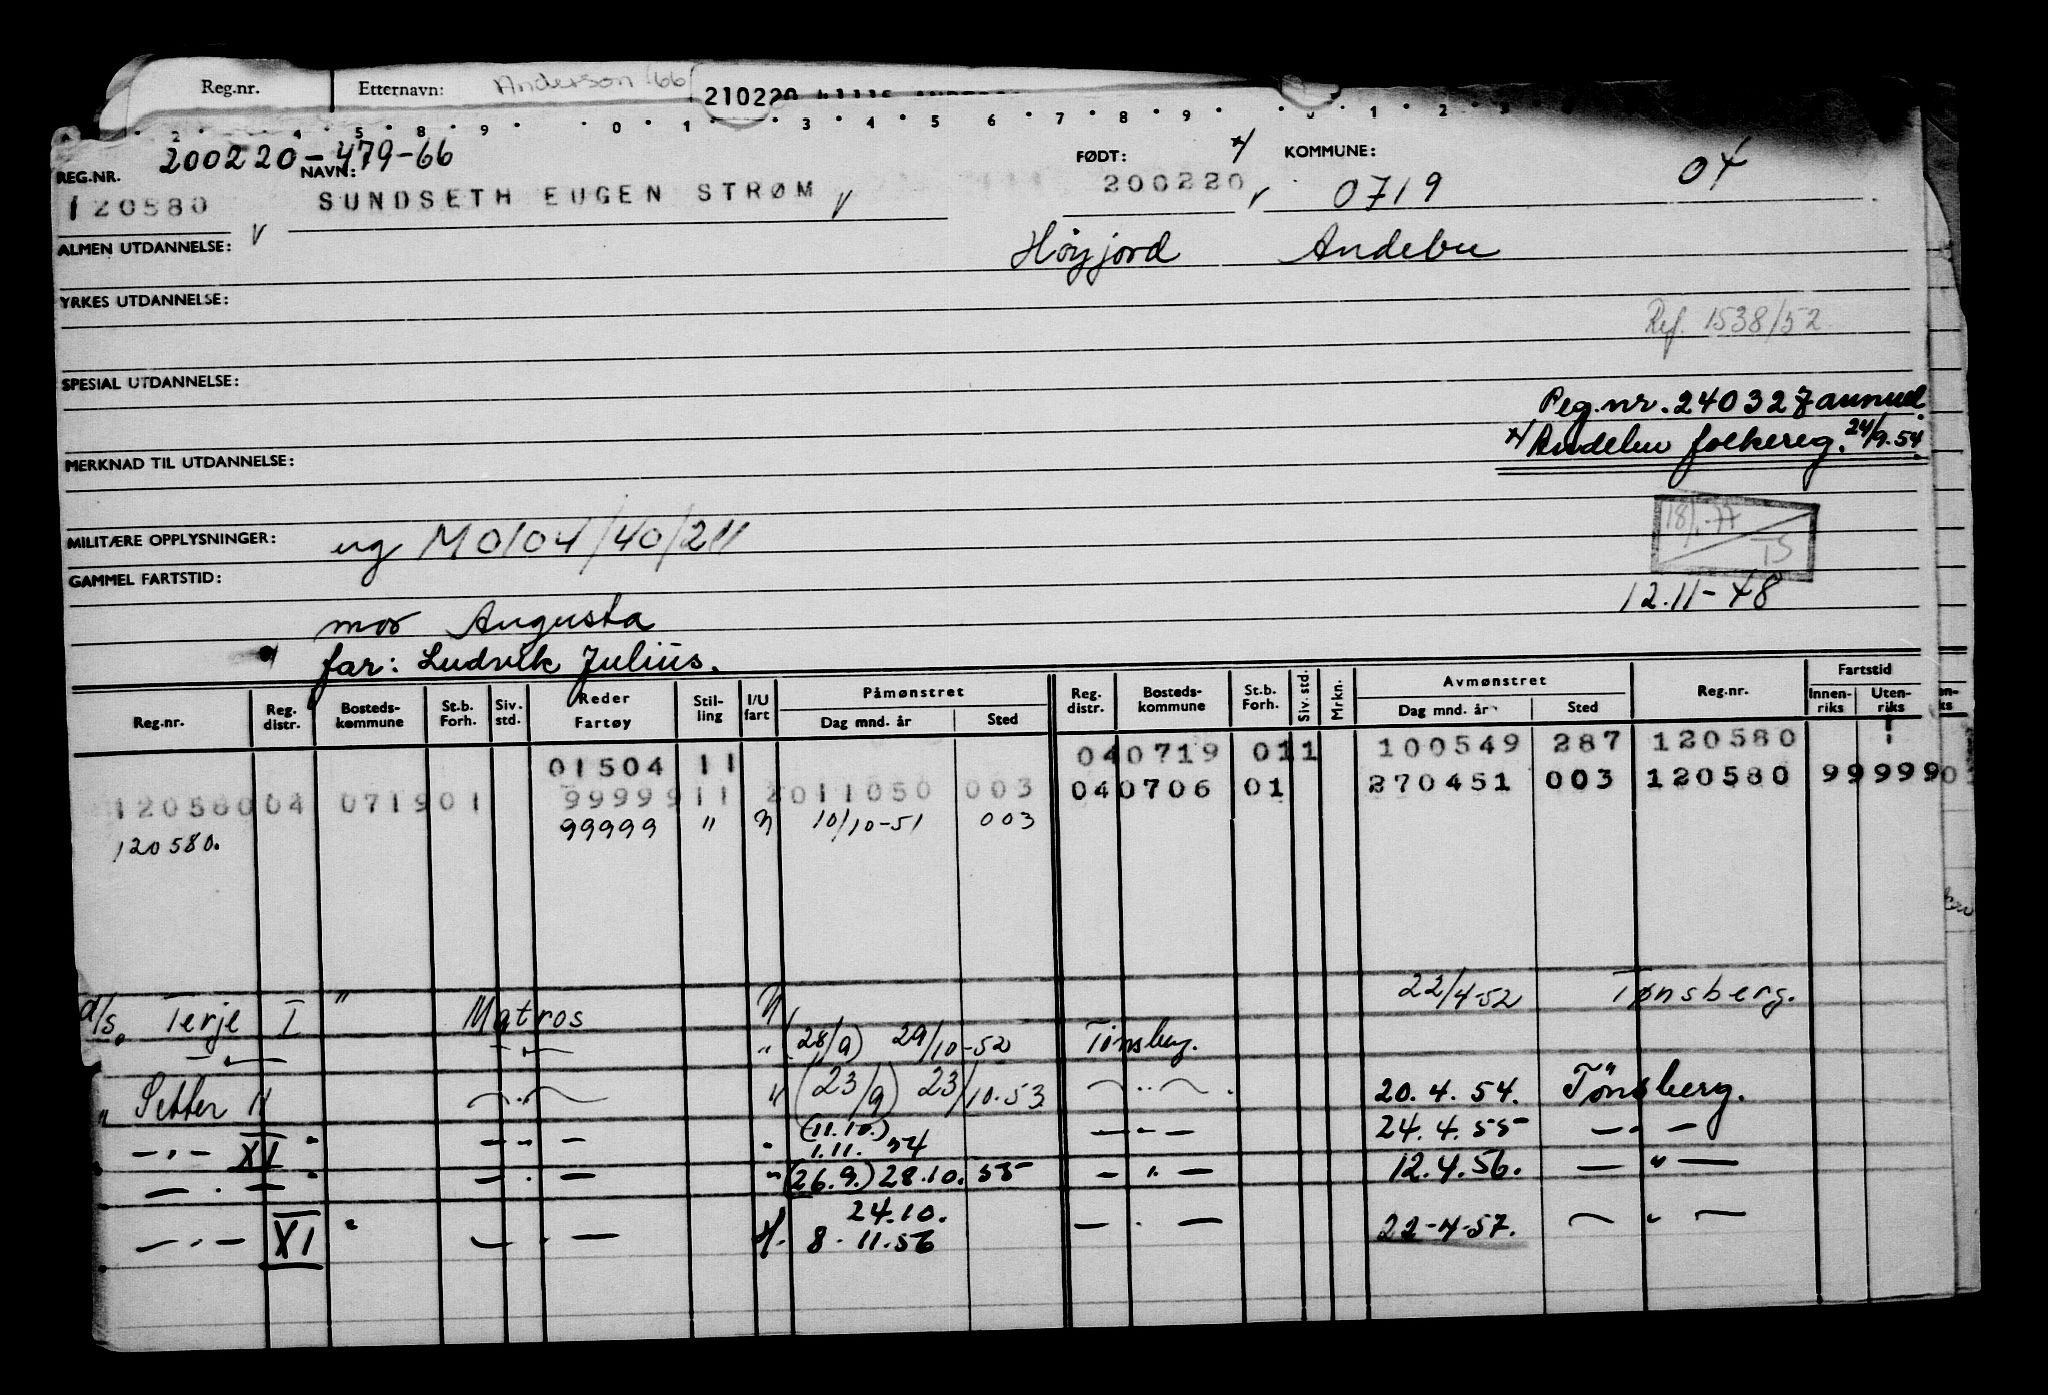 Reg.nr. Etternavn: Anderson 66
210220
2 4 5 8 9 0 1 3 4 5 6 7 8 9 0 1 2 3
REG.NR. 200220-479-66 NAVN: FØDT: KOMMUNE: 04
120580 SUNDSETH EUGEN STRØM 200220 0719
ALMEN UTDANNELSE: Høyjord Andebu
YRKES UTDANNELSE:
Ref. 1538/52
SPESIAL UTDANNELSE:
Reg.nr. 240327 annul.
MERKNAD TIL UTDANNELSE: Andebu folkereg. 24/9-54
MILITÆRE OPPLYSNINGER: ug M0104/40/211
18/1-77 TS
GAMMEL FARTSTID:
12.11-48
mor Augusta
far: Ludvik Julius.
Reg.nr. Reg. distr. Bosteds-kommune St.b. Forh. Siv. std. Reder Fartøy Stil-ling I/U fart Påmønstret Dag mnd. år Sted Reg. distr. Bosteds-kommune St.b. Forh. Siv. std. Mrkn. Avmønstret Dag mnd. år Sted Reg.nr. Fartstid Innen-riks Uten-riks
01504 11 040719 011 100549 287 120580
120580 04 071901 99999 11 2011050 003 040706 01 270451 003 120580 99999
120580. 99999 " 10/10-51 003
d/s. Terje I " Matros 22/4-52 Tønsberg.
— " — — " — " (28/9) 29/10-52 Tønsberg.
" Setter II — " — " (23/9) 23/10.53 — " — . 20.4.54. Tønsberg.
— " — XI " — " — " (11.10.) 1.11. 54 — " — 24.4.55 — " —
— " — " — " — " (26.9.) 28.10.55 — " — 12.4.56. — " —
— " — XI " — " — 24.10. 8.11.56 — " — 22-4-57. — " —